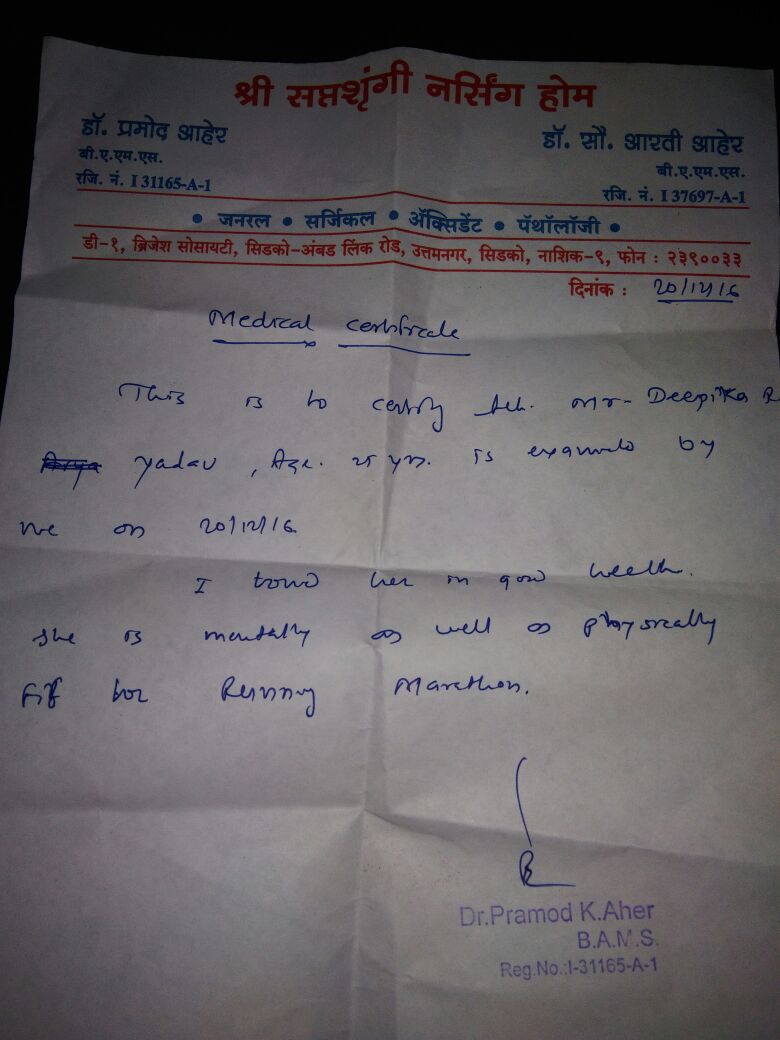 श्री सप्तशृंगी नर्सिंग होम
डॉ. प्रमोद आहेर
बी.ए.एम.एस.
रजि. नं. I 31165-A-1
डॉ. सौ. आरती आहेर
बी.ए.एम.एस.
रजि. नं. I 37697-A-1
• जनरल • सर्जिकल • ॲक्सिडेंट • पॅथॉलॉजी •
डी-१, ब्रिजेश सोसायटी, सिडको-अंबड लिंक रोड, उत्तमनगर, सिडको, नाशिक-९, फोन : २३९००३३
दिनांक : 20/12/16
Medical certificate
This is to certify that Mr- Deepika R
Yadav, Age. 25 yrs. is examined by
me on 20/12/16
I found her in good health.
She is mentally as well as physically
Fit for Running Marathon.
Dr.Pramod K.Aher
B.A.M.S.
Reg.No.:I-31165-A-1